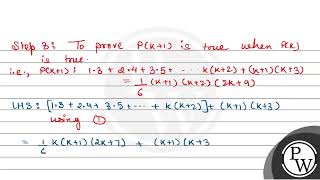 Step 3: To prove P(k+1) is true when P(k)
is true.
i.e., P(k+1): 1·3 + 2·4 + 3·5 + ··· k(k+2) + (k+1)(k+3)
= 1/6 (k+1)(k+2)(2k+9)
LHS: [1·3 + 2·4 + 3·5 + ··· + k(k+2)] + (k+1)(k+3)
using ①
= 1/6 k(k+1)(2k+7) + (k+1)(k+3
PW